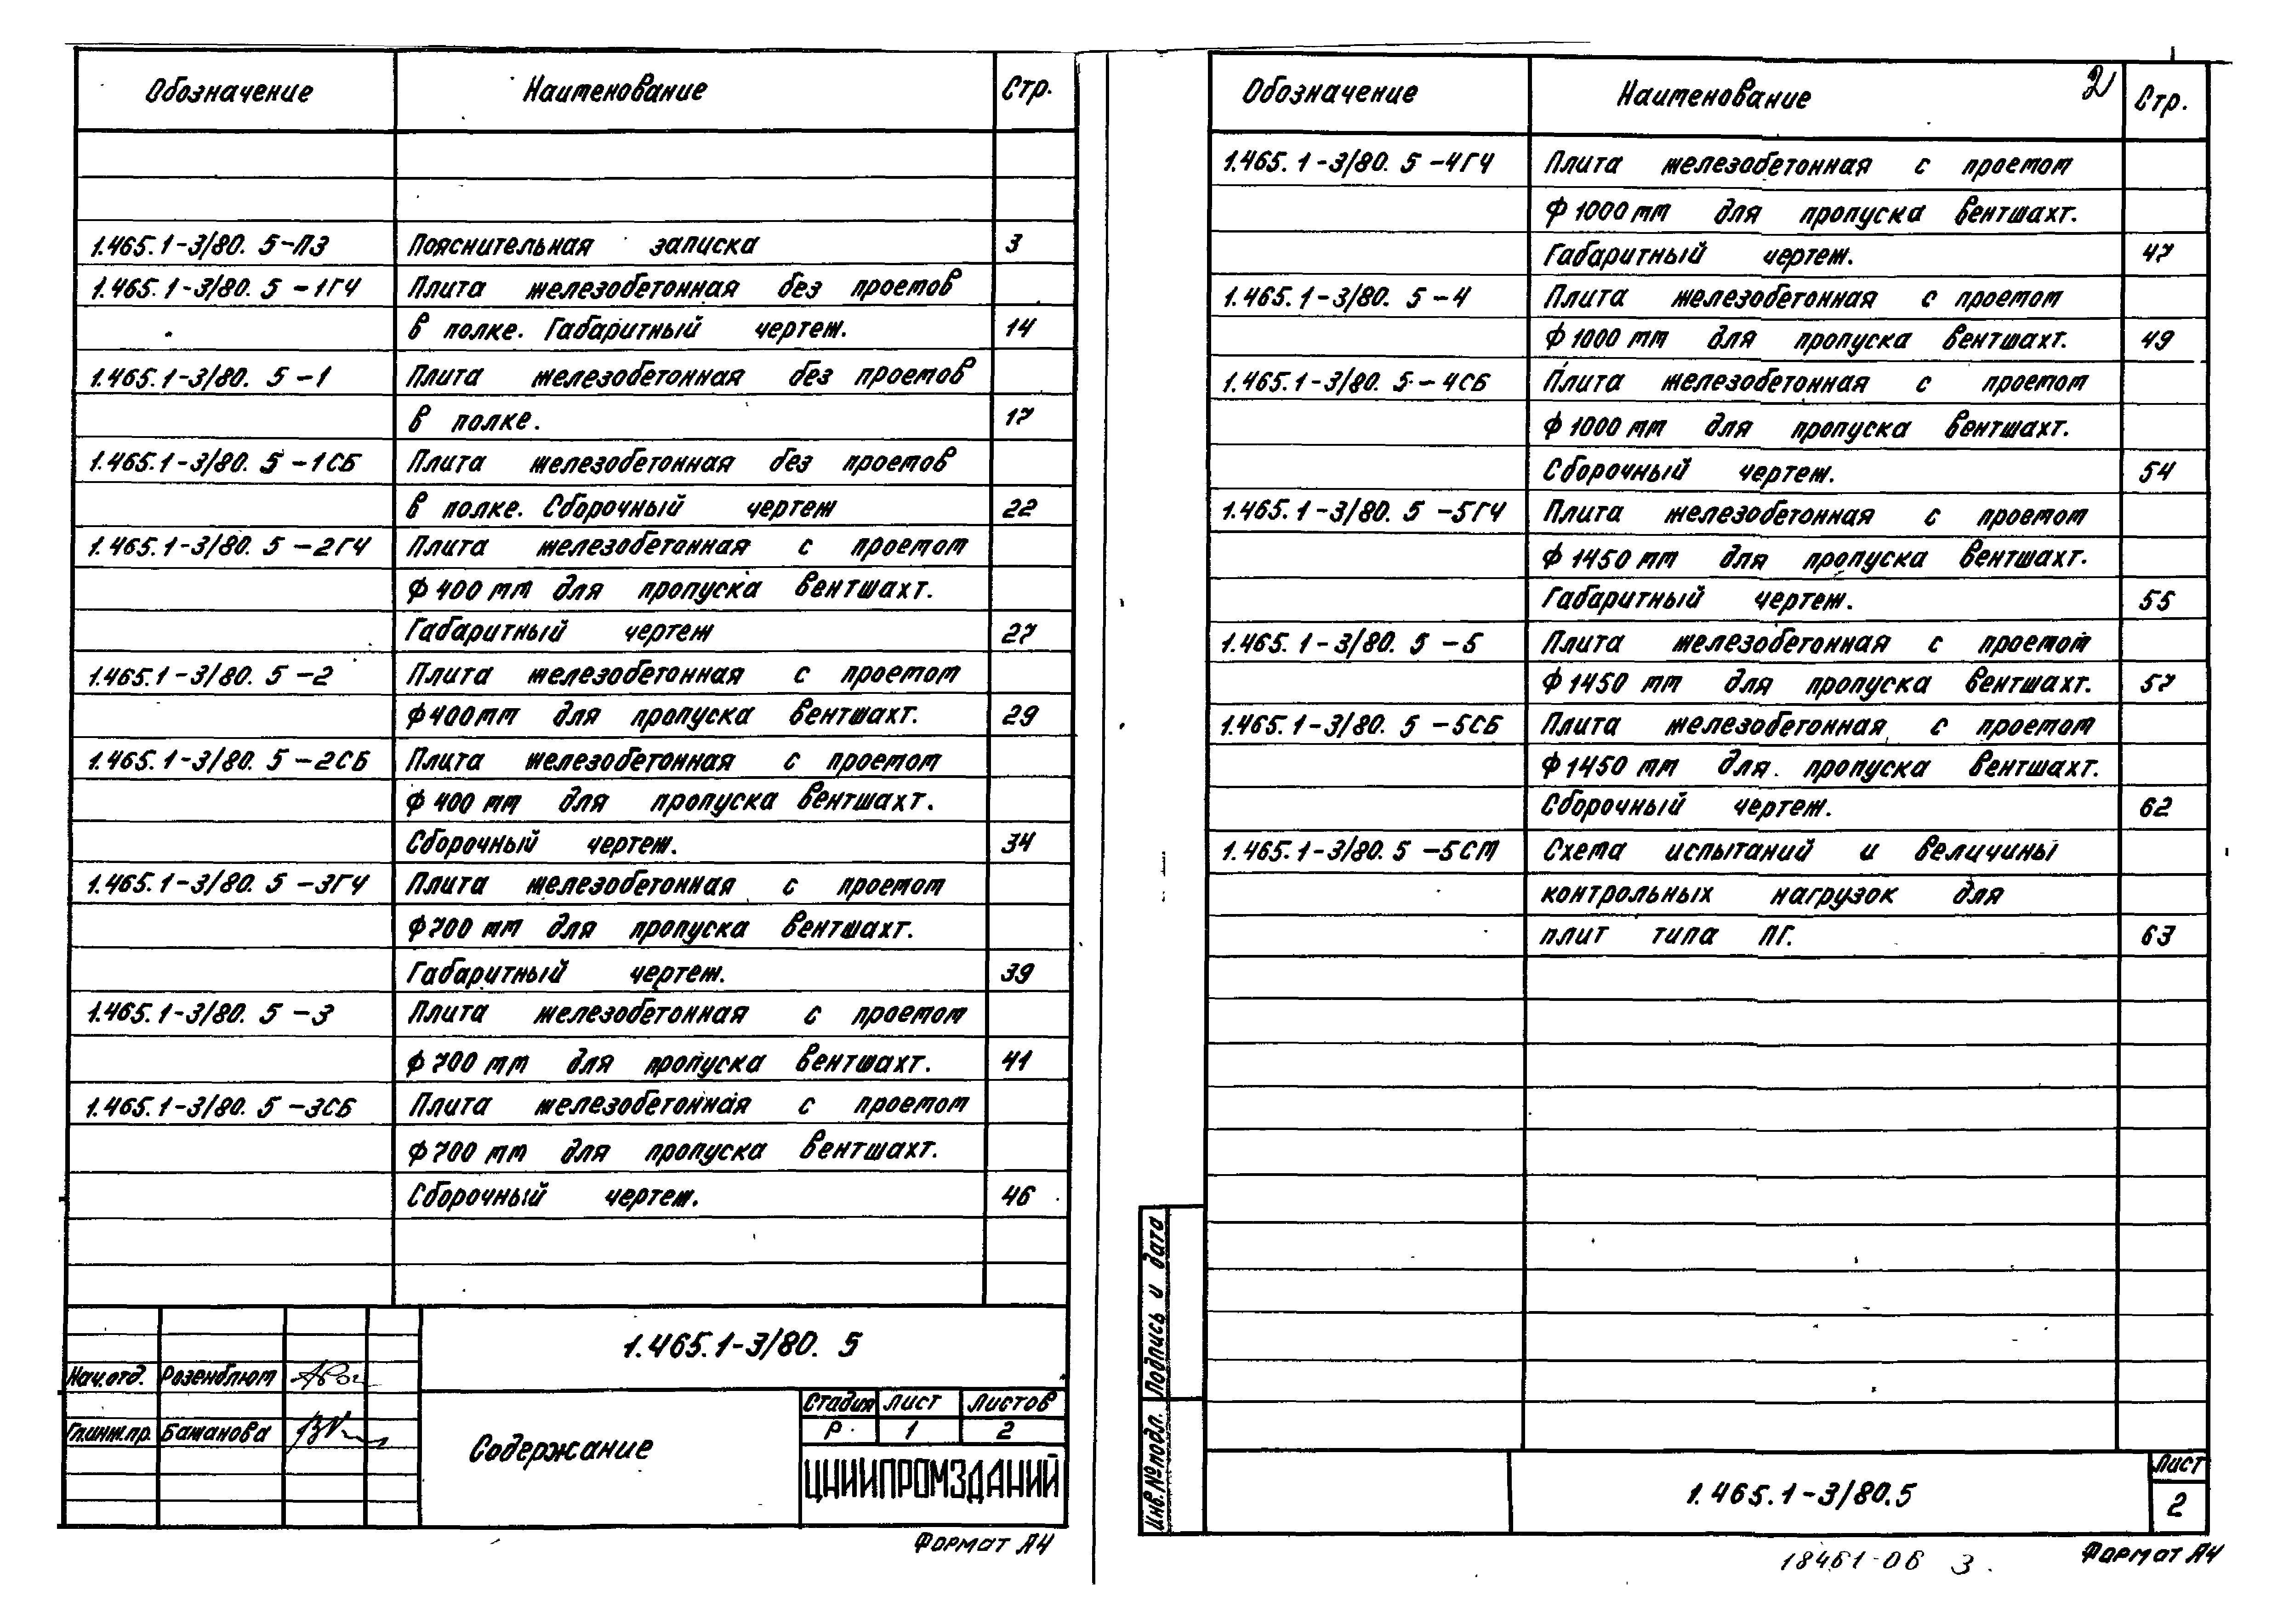 Обозначение Наименование Стр.
1.465.1-3/80. 5-ПЗ Пояснительная записка 3
1.465.1-3/80. 5-1ГЧ Плита железобетонная без проемов
в полке. Габаритный чертеж. 14
1.465.1-3/80. 5-1 Плита железобетонная без проемов
в полке. 17
1.465.1-3/80. 5-1СБ Плита железобетонная без проемов
в полке. Сборочный чертеж 22
1.465.1-3/80. 5-2ГЧ Плита железобетонная с проемом
ф 400 мм для пропуска вентшахт.
Габаритный чертеж 27
1.465.1-3/80. 5-2 Плита железобетонная с проемом
ф 400 мм для пропуска вентшахт. 29
1.465.1-3/80. 5-2СБ Плита железобетонная с проемом
ф 400 мм для пропуска вентшахт.
Сборочный чертеж. 34
1.465.1-3/80. 5-3ГЧ Плита железобетонная с проемом
ф 700 мм для пропуска вентшахт.
Габаритный чертеж. 39
1.465.1-3/80. 5-3 Плита железобетонная с проемом
ф 700 мм для пропуска вентшахт. 41
1.465.1-3/80. 5-3СБ Плита железобетонная с проемом
ф 700 мм для пропуска вентшахт.
Сборочный чертеж. 46
1.465.1-3/80. 5
Нач.отд. Розенблюм
Гл.инж.пр. Бажанова
Содержание
Стадия Лист Листов
Р 1 2
ЦНИИПРОМЗДАНИЙ
Формат А4
2
Обозначение Наименование Стр.
1.465.1-3/80. 5-4ГЧ Плита железобетонная с проемом
ф 1000 мм для пропуска вентшахт.
Габаритный чертеж. 47
1.465.1-3/80. 5-4 Плита железобетонная с проемом
ф 1000 мм для пропуска вентшахт. 49
1.465.1-3/80. 5-4СБ Плита железобетонная с проемом
ф 1000 мм для пропуска вентшахт.
Сборочный чертеж. 54
1.465.1-3/80. 5-5ГЧ Плита железобетонная с проемом
ф 1450 мм для пропуска вентшахт.
Габаритный чертеж. 55
1.465.1-3/80. 5-5 Плита железобетонная с проемом
ф 1450 мм для пропуска вентшахт. 57
1.465.1-3/80. 5-5СБ Плита железобетонная с проемом
ф 1450 мм для пропуска вентшахт.
Сборочный чертеж. 62
1.465.1-3/80. 5-5СМ Схема испытаний и величины
контрольных нагрузок для
плит типа ПГ. 63
Подпись и дата
Инв.№подл.
1.465.1-3/80.5
Лист
2
18461-06 3
Формат А4